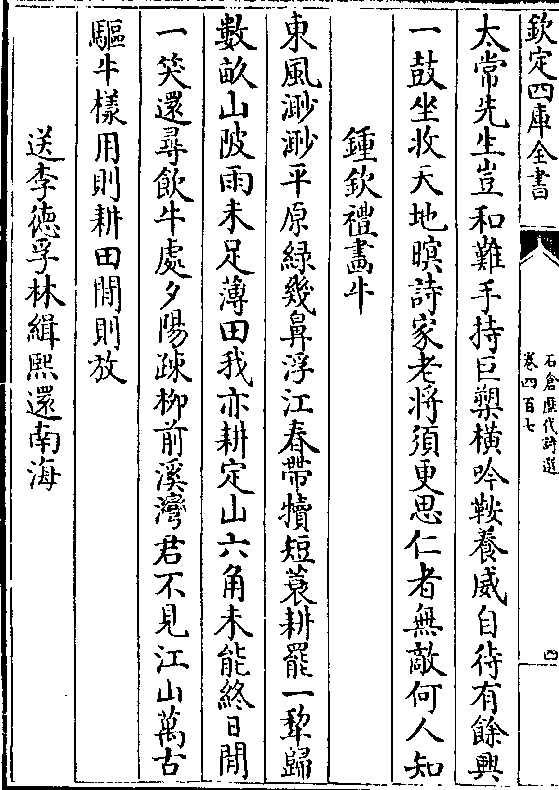 欽定四庫全書
石倉歷代詩選
卷四百七
四
太常先生豈和難手持巨槊橫吟鞍養威自待有餘興
一鼓坐收天地暝詩家老將須更思仁者無敵何人知
鍾欽禮畫牛
東風渺渺平原綠幾鼻浮江春帶犢短蓑耕罷一犂歸
數畝山陂雨未足薄田我亦耕定山六角未能終日閒
一笑還尋飲牛處夕陽疎柳前溪灣君不見江山萬古
驅牛樣用則耕田閒則放
送李德孚林緝熙還南海